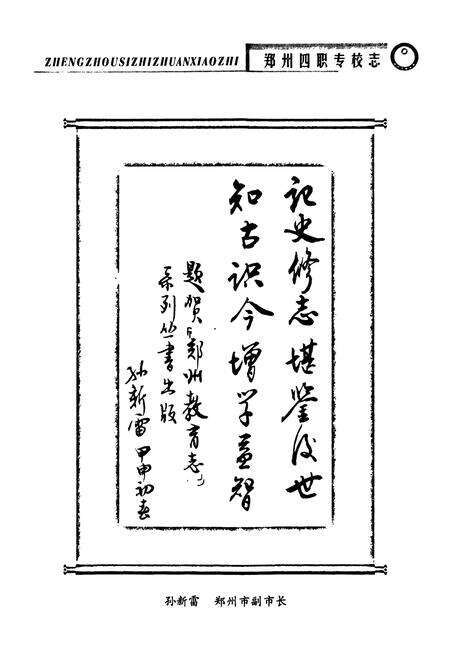 ZHENGZHOUSIZHIZHUANXIAOZHI
郑州四职专校志
记史修志堪鉴后世
知古识今增学益智
题贺《郑州教育志》
系列丛书出版
孙新雷 甲申初春
孙新雷 郑州市副市长